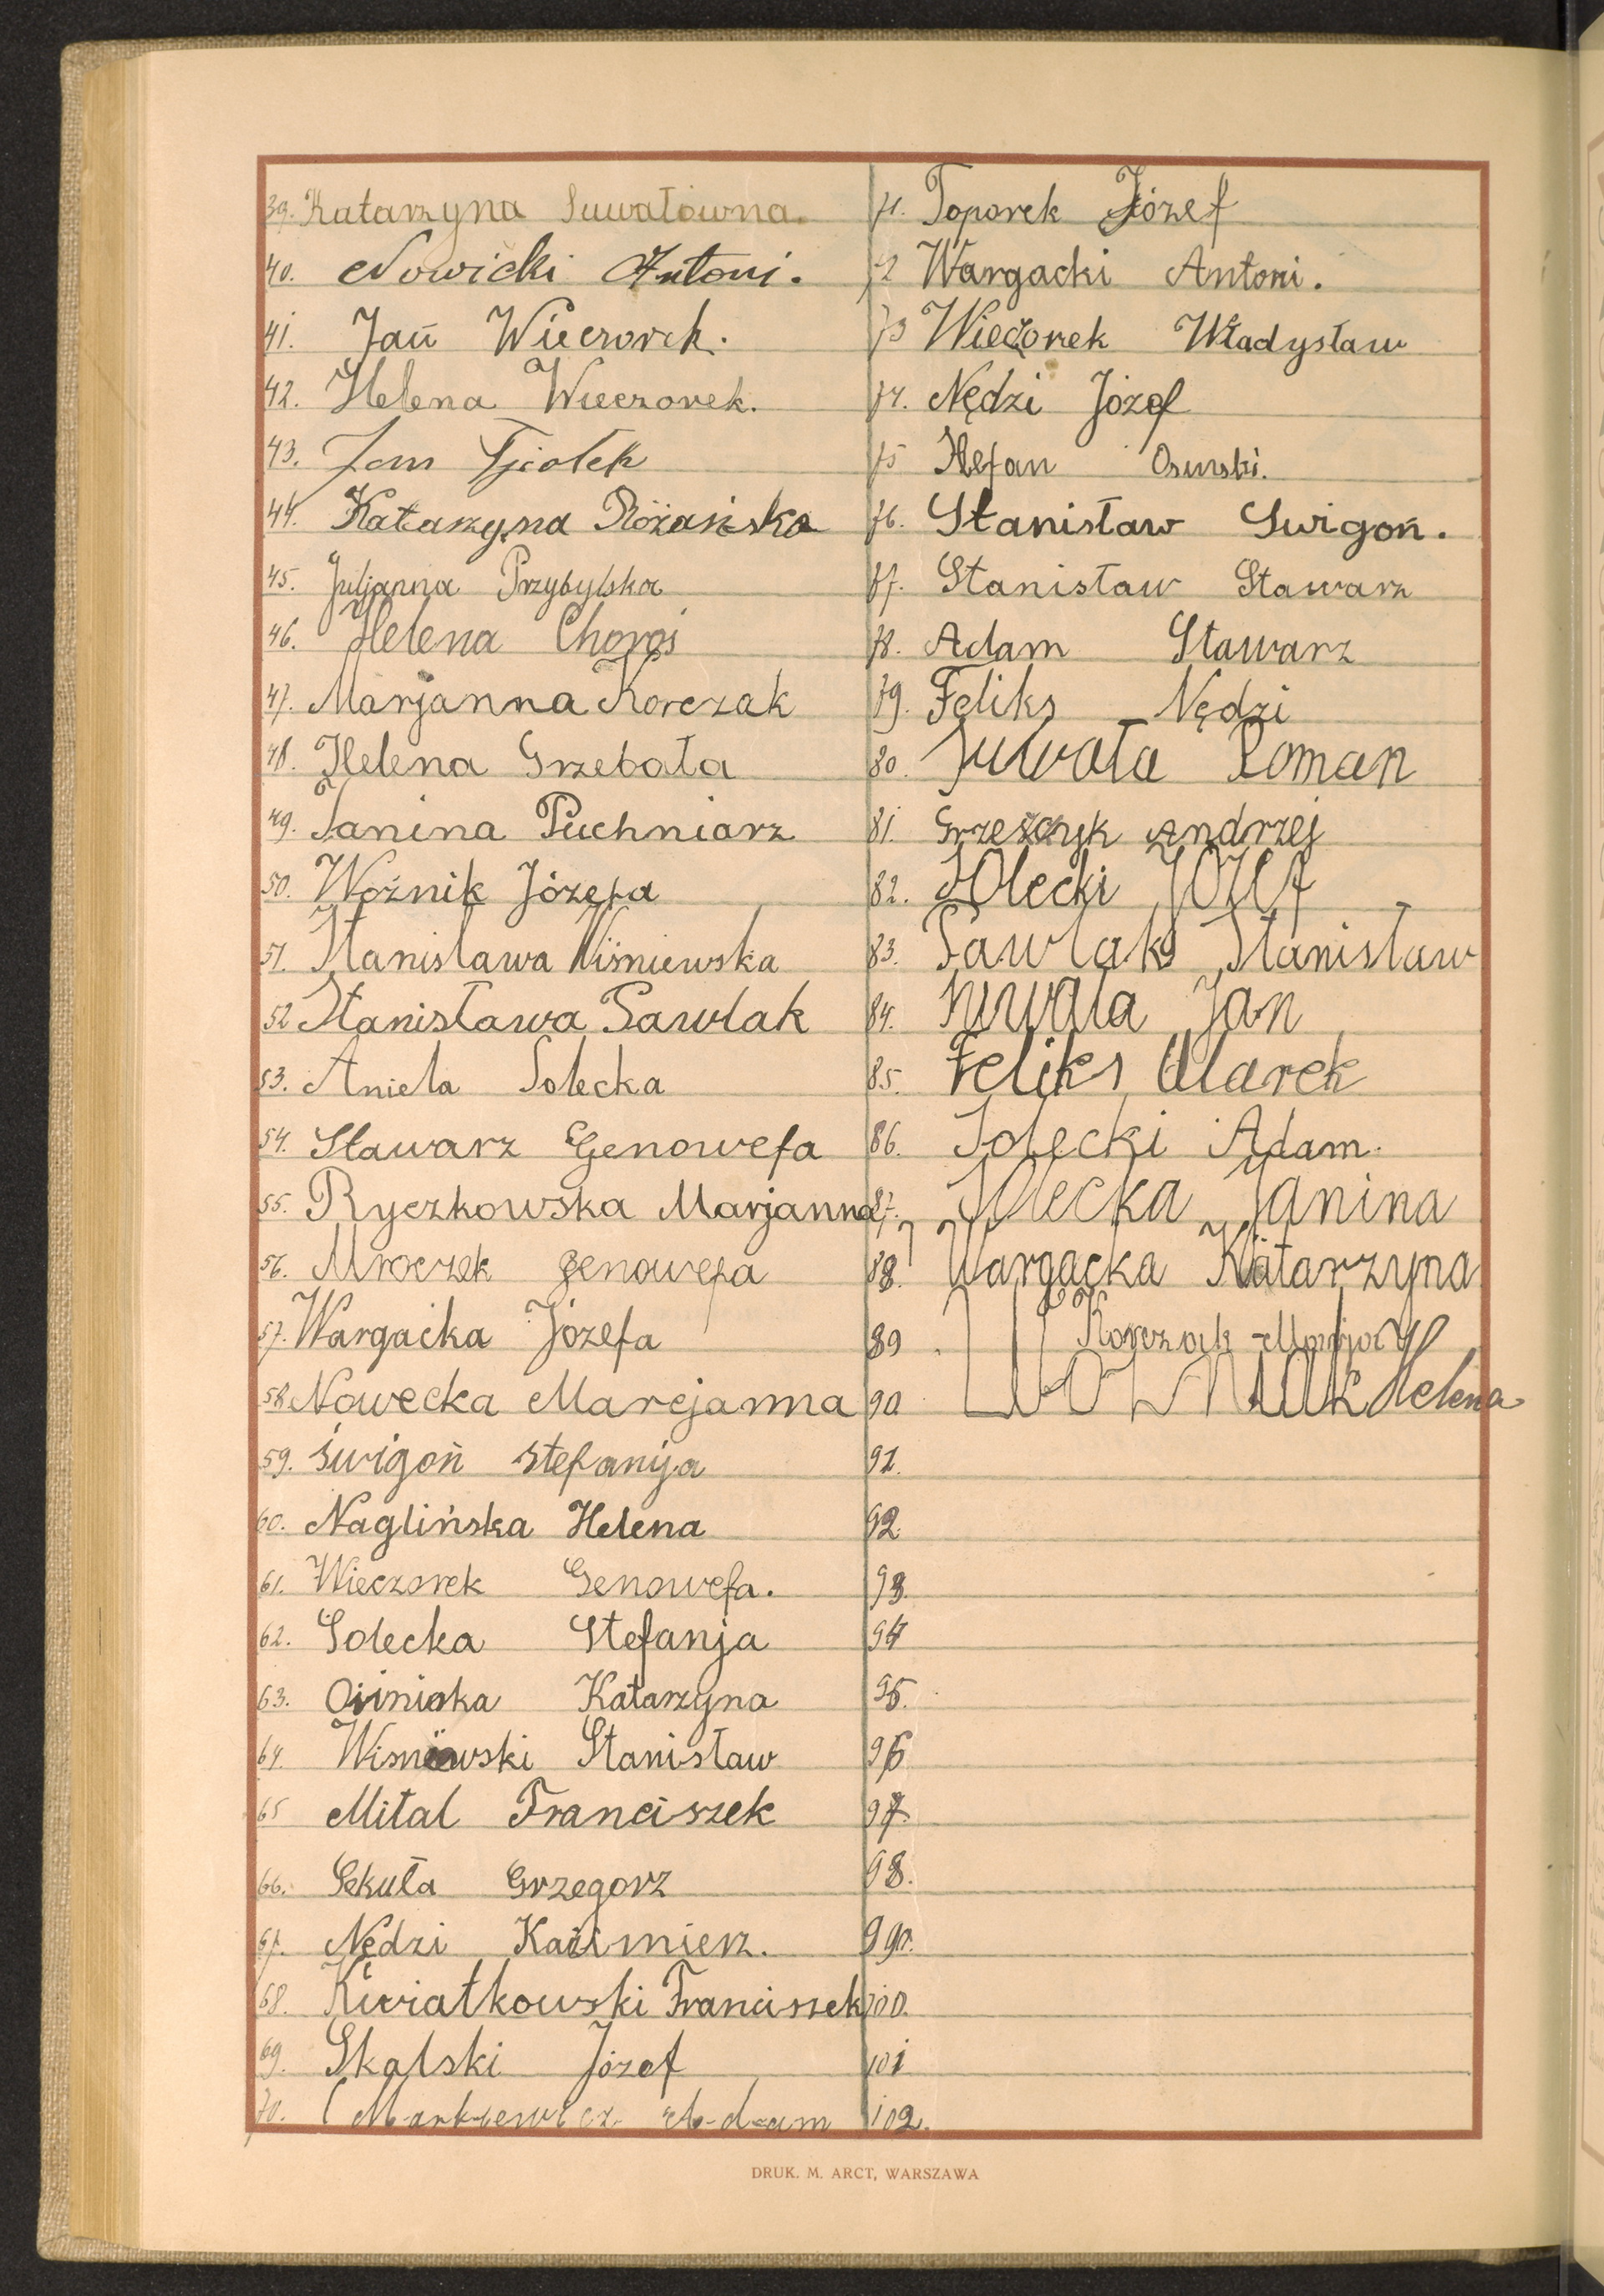 39. Katarzyna Suwałówna.
40. Nowicki Antoni.
41. Jan Wieczorek.
42. Helena Wieczorek.
43. Jan Fjołek
44. Katarzyna Różańska
45. Juljanna Przybylska
46. Helena Choroś
47. Marjanna Korczak
48. Helena Grzebała
49. Janina Puchniarz
50. Woźnik Józefa
51. Stanisława Wiśniewska
52 Stanisława Pawlak
53. Aniela Solecka
54. Stawarz Genowefa
55. Ryczkowska Marjanna
56. Mroczek Genowefa
57. Wargacka Józefa
58. Nowecka Marcjanna
59. Świgoń Stefanija
60. Naglińska Helena
61. Wieczorek Genowefa.
62. Solecka Stefanja
63. Katarzyna
64. Wiśniewski Stanisław
65 Mital Franciszek
66. Sekuła Grzegorz
67. Nędzi Kazimierz.
68. Kwiatkowski Franciszek
69. Skalski Józef
70. Markiewicz Adam
71. Toporek Józef
72 Wargacki Antoni.
73 Wieczorek Władysław
74. Nędzi Józef
75 Stefan Osuwski.
76. Stanisław Swigoń.
77. Stanisław Stawarz
78. Adam Stawarz
79. Feliks Nędzi
80. Suwała Roman
81. Grzeszczyk Andrzej
82. Solecki Józef
83. Pawlak Stanisław
84. Suwała Jan
85. Feliks Marek
86. Solecki Adam.
87. Solecka Janina
88. Wargacka Katarzyna
89. Korczak Marja
90. Woźniak Helena
91.
92.
93.
94
95.
96
97.
98.
99.
100.
101
102.
DRUK. M. ARCT, WARSZAWA